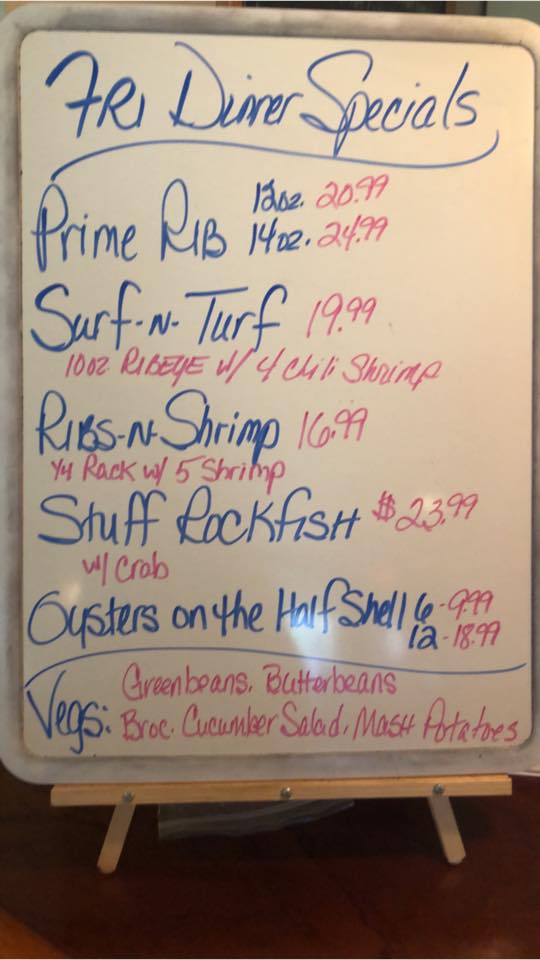 FRI Dinner Specials
Prime RIB 12oz. 20.99
14oz. 24.99
Surf-N-Turf 19.99
10oz RIBEYE w/ 4 Chili Shrimp
RIBS-N-Shrimp 16.99
1/4 Rack w/ 5 Shrimp
Stuff Rockfish $23.99
w/ Crab
Oysters on the Half Shell 6-9.99
12-18.99
Greenbeans, Butterbeans
Vegs: Broc. Cucumber Salad, Mash Potatoes